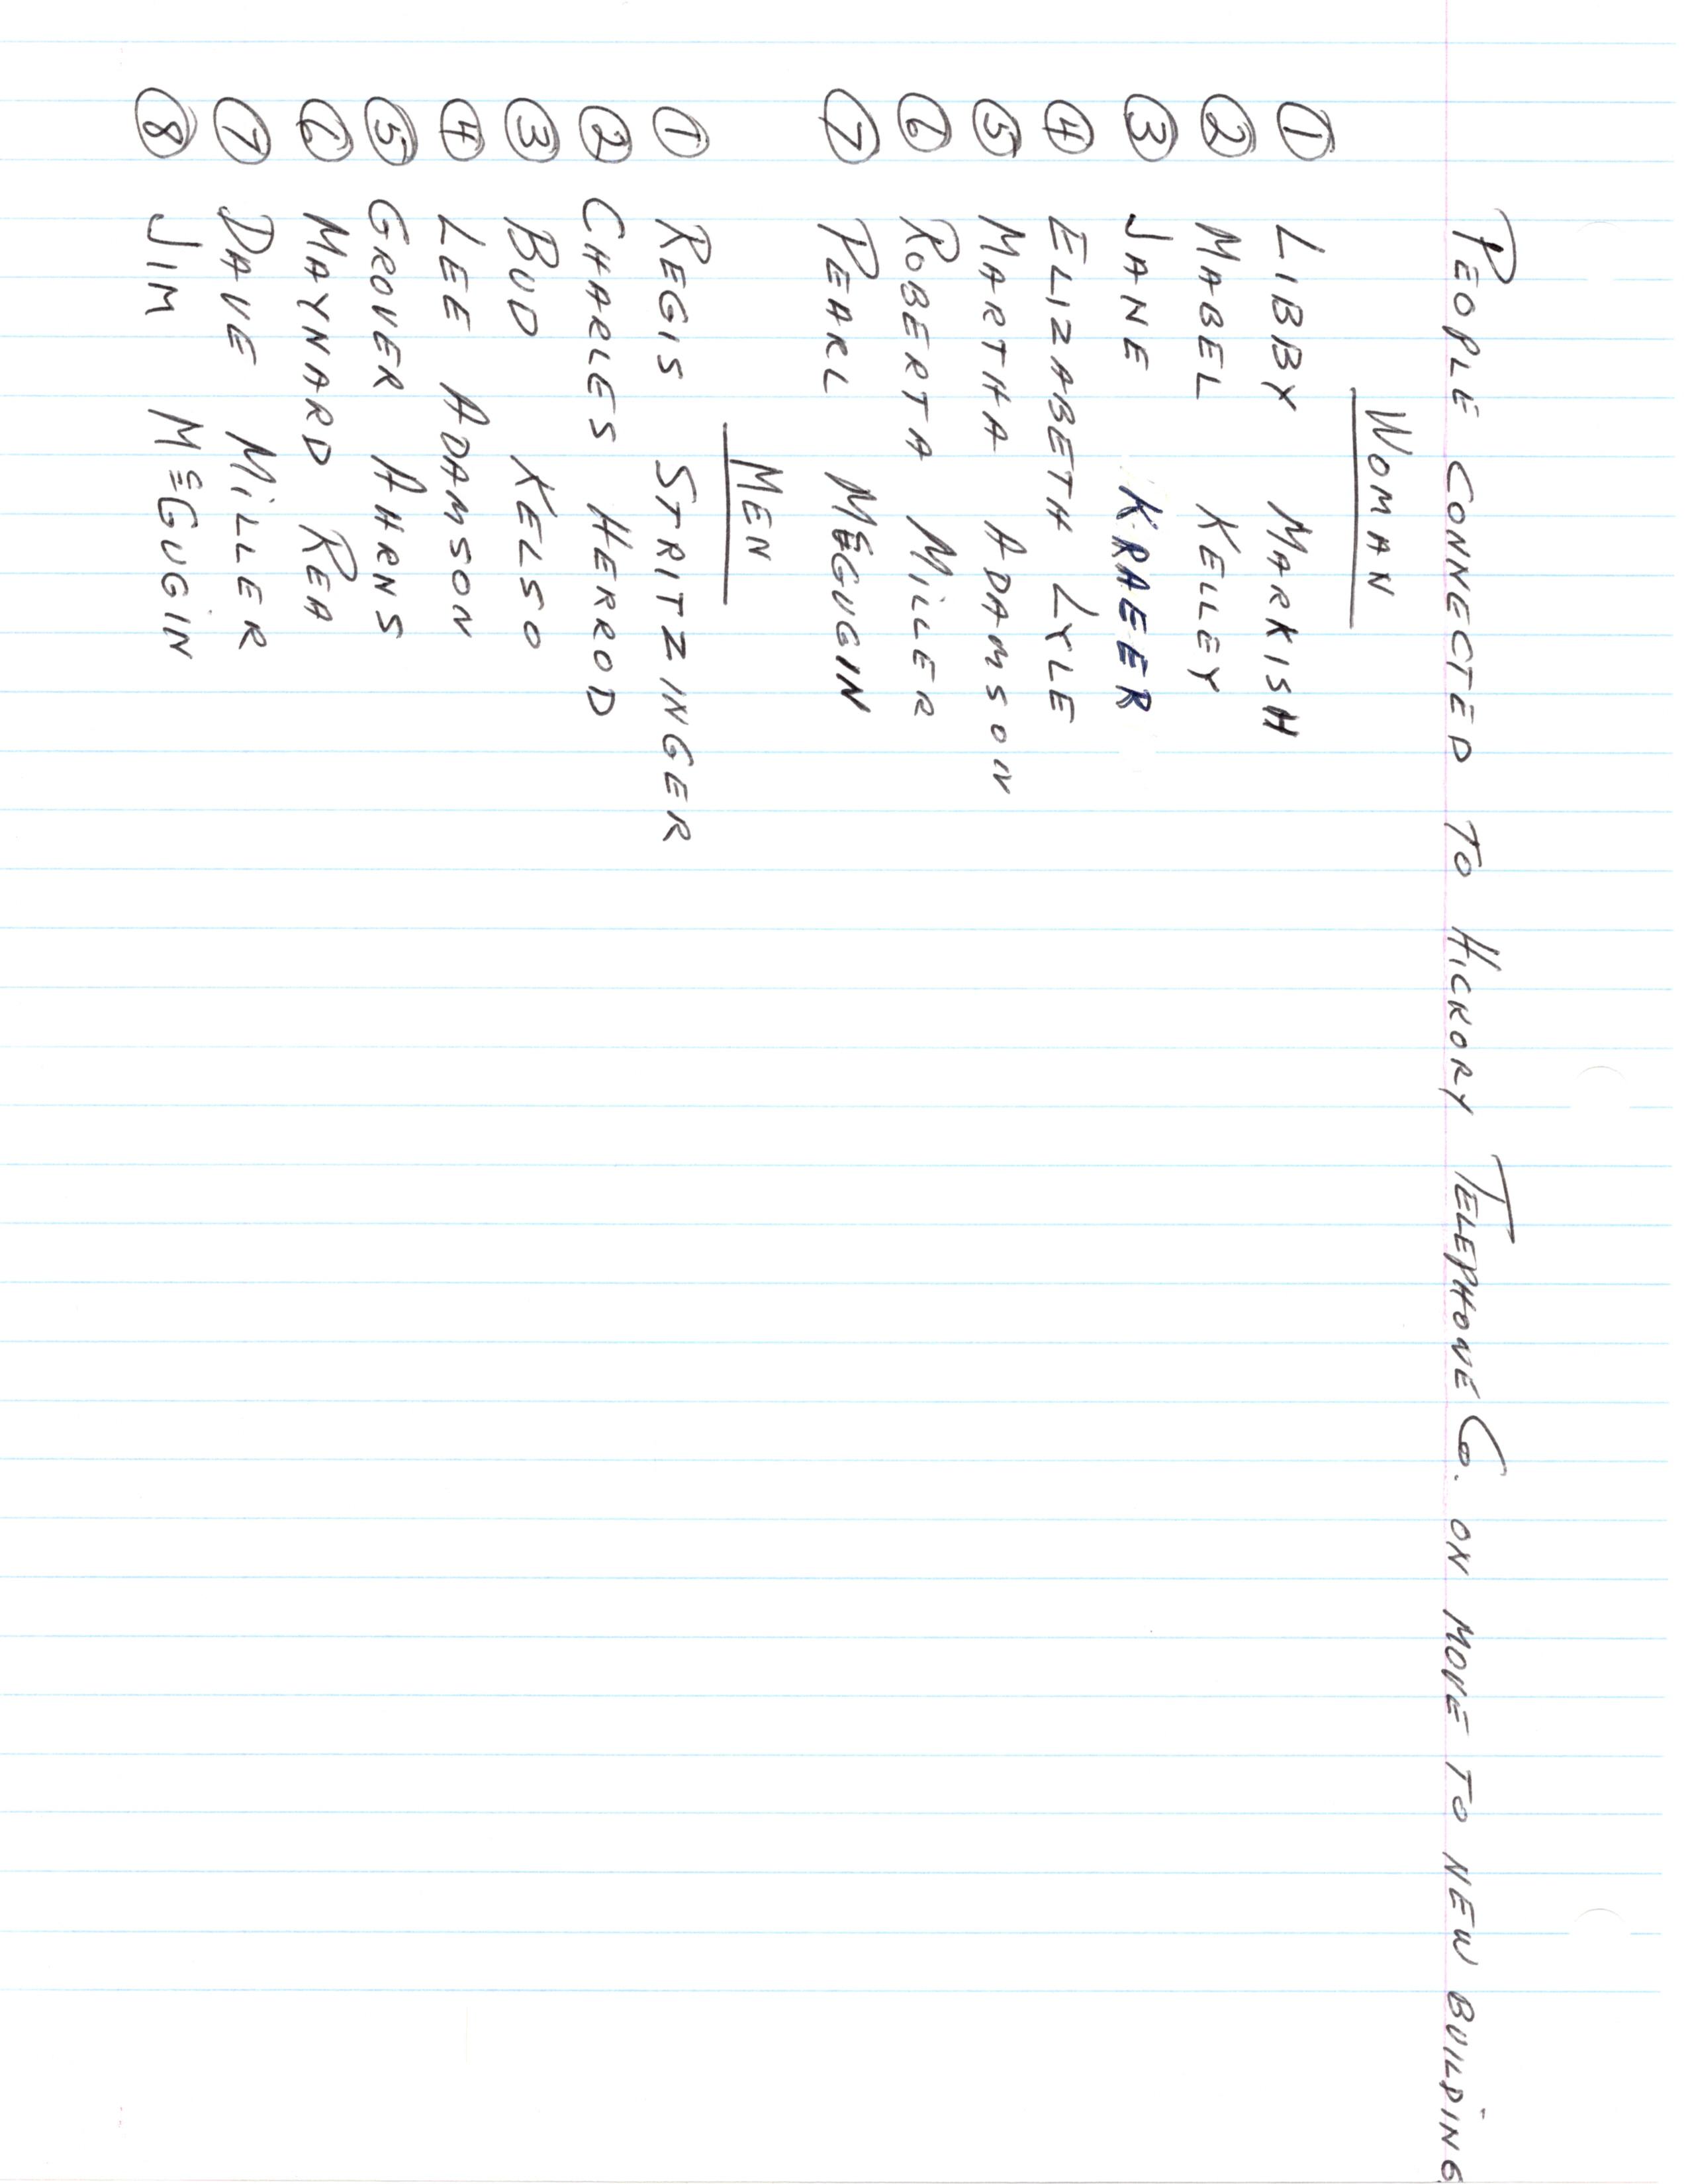 PEOPLE CONNECTED TO HICKORY TELEPHONE CO. ON MOVE TO NEW BUILDING
WOMAN
① LIBBY MARKISH
② MABEL KELLEY
③ JANE KRAEER
④ ELIZABETH LYLE
⑤ MARTHA ADAMSON
⑥ ROBERTA MILLER
⑦ PEARL McGUGIN
MEN
① REGIS STRITZINGER
② CHARLES HEROD
③ BUD KELSO
④ LEE ADAMSON
⑤ GROVER AHRNS
⑥ MAYNARD REA
⑦ DAVE MILLER
⑧ JIM McGUGIN